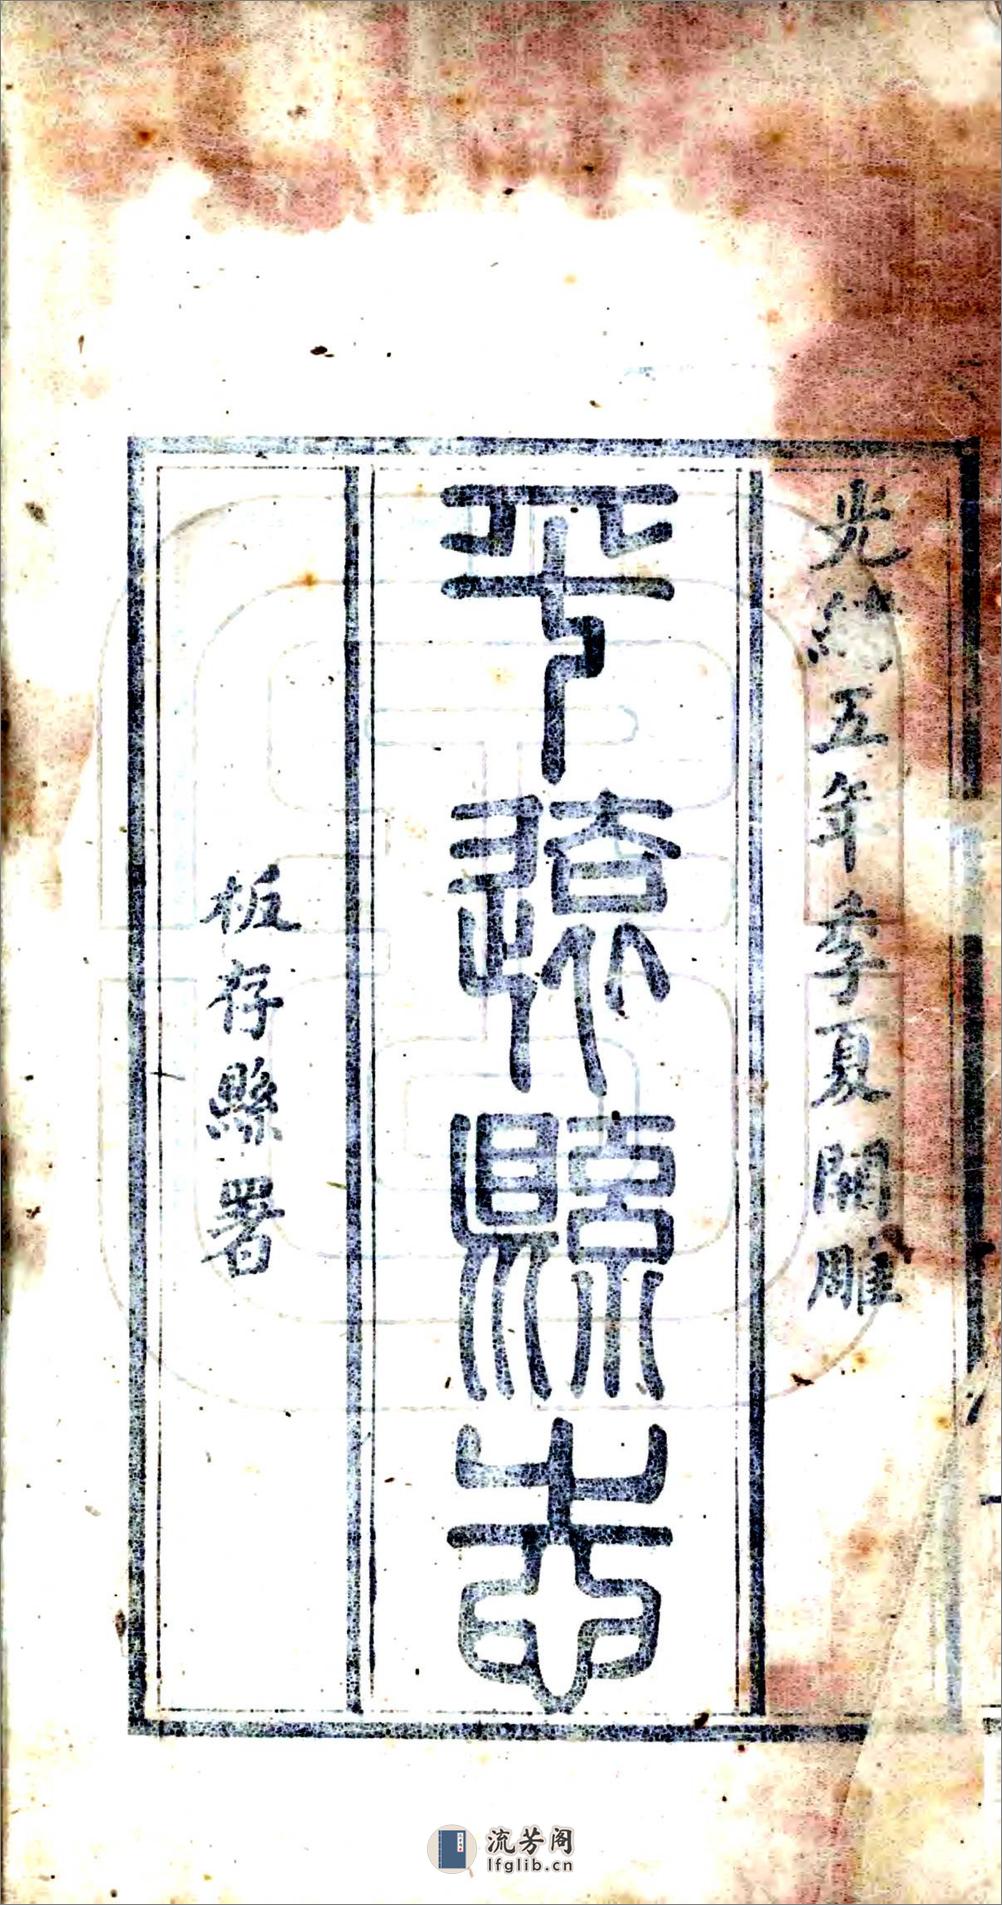 光緒五年季夏開雕
平遠縣志
板存縣署
流芳阁
lfglib.cn